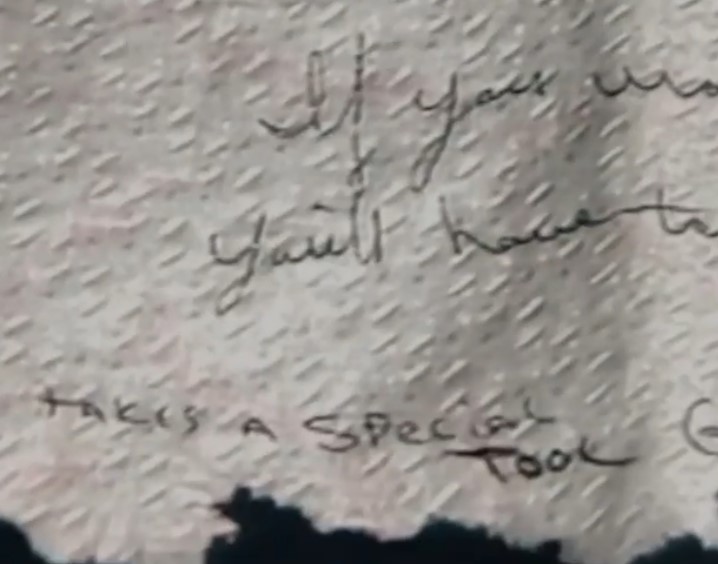 If you
you'll have to
TAKES A SPECIAL
TOOL